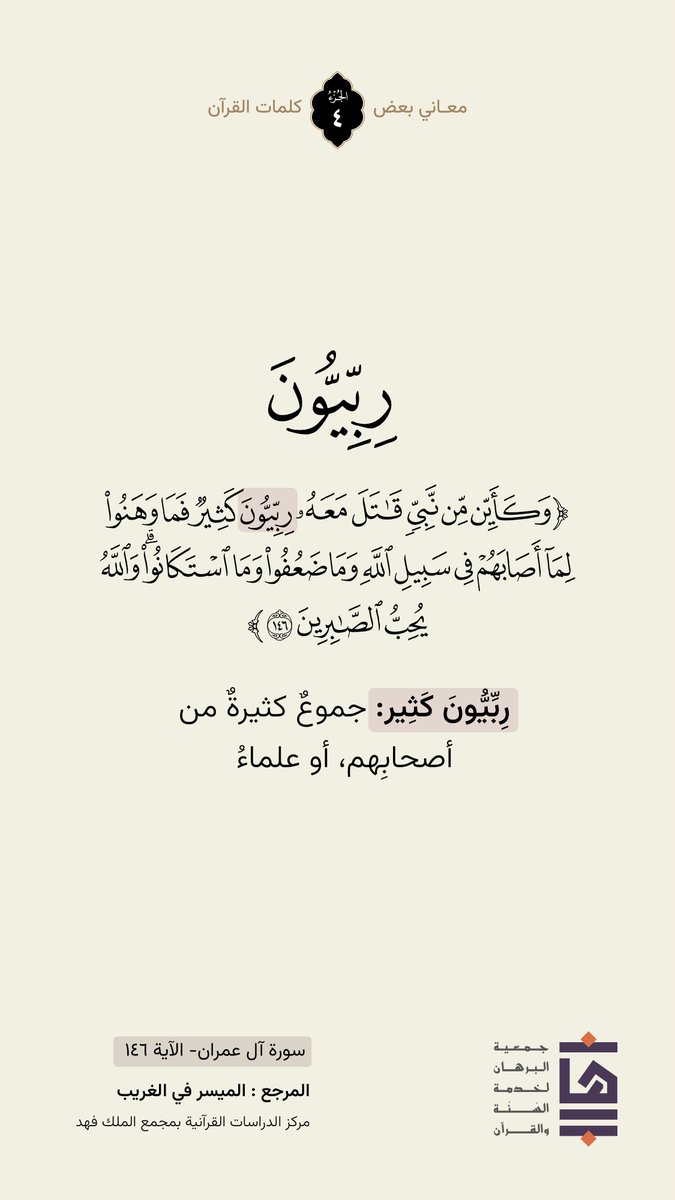 معـاني بعض الجُزْءُ ٤ كلمات القرآن
رِبِّيُّونَ
﴿وَكَأَيِّن مِّن نَّبِيّٖ قَٰتَلَ مَعَهُۥ رِبِّيُّونَ كَثِيرٞ فَمَا وَهَنُواْ
لِمَآ أَصَابَهُمۡ فِي سَبِيلِ ٱللَّهِ وَمَا ضَعُفُواْ وَمَا ٱسۡتَكَانُواْۗ وَٱللَّهُ
يُحِبُّ ٱلصَّٰبِرِينَ ١٤٦﴾
رِبِّيُّونَ كَثِير: جموعٌ كثيرةٌ من
أصحابِهم، أو علماءُ
سورة آل عمران- الآية ١٤٦
المرجع : الميسر في الغريب
مركز الدراسات القرآنية بمجمع الملك فهد
جـمـعيـة
البـرهــان
لـخـدمـة
السُّـنَّـة
والقـــرآن